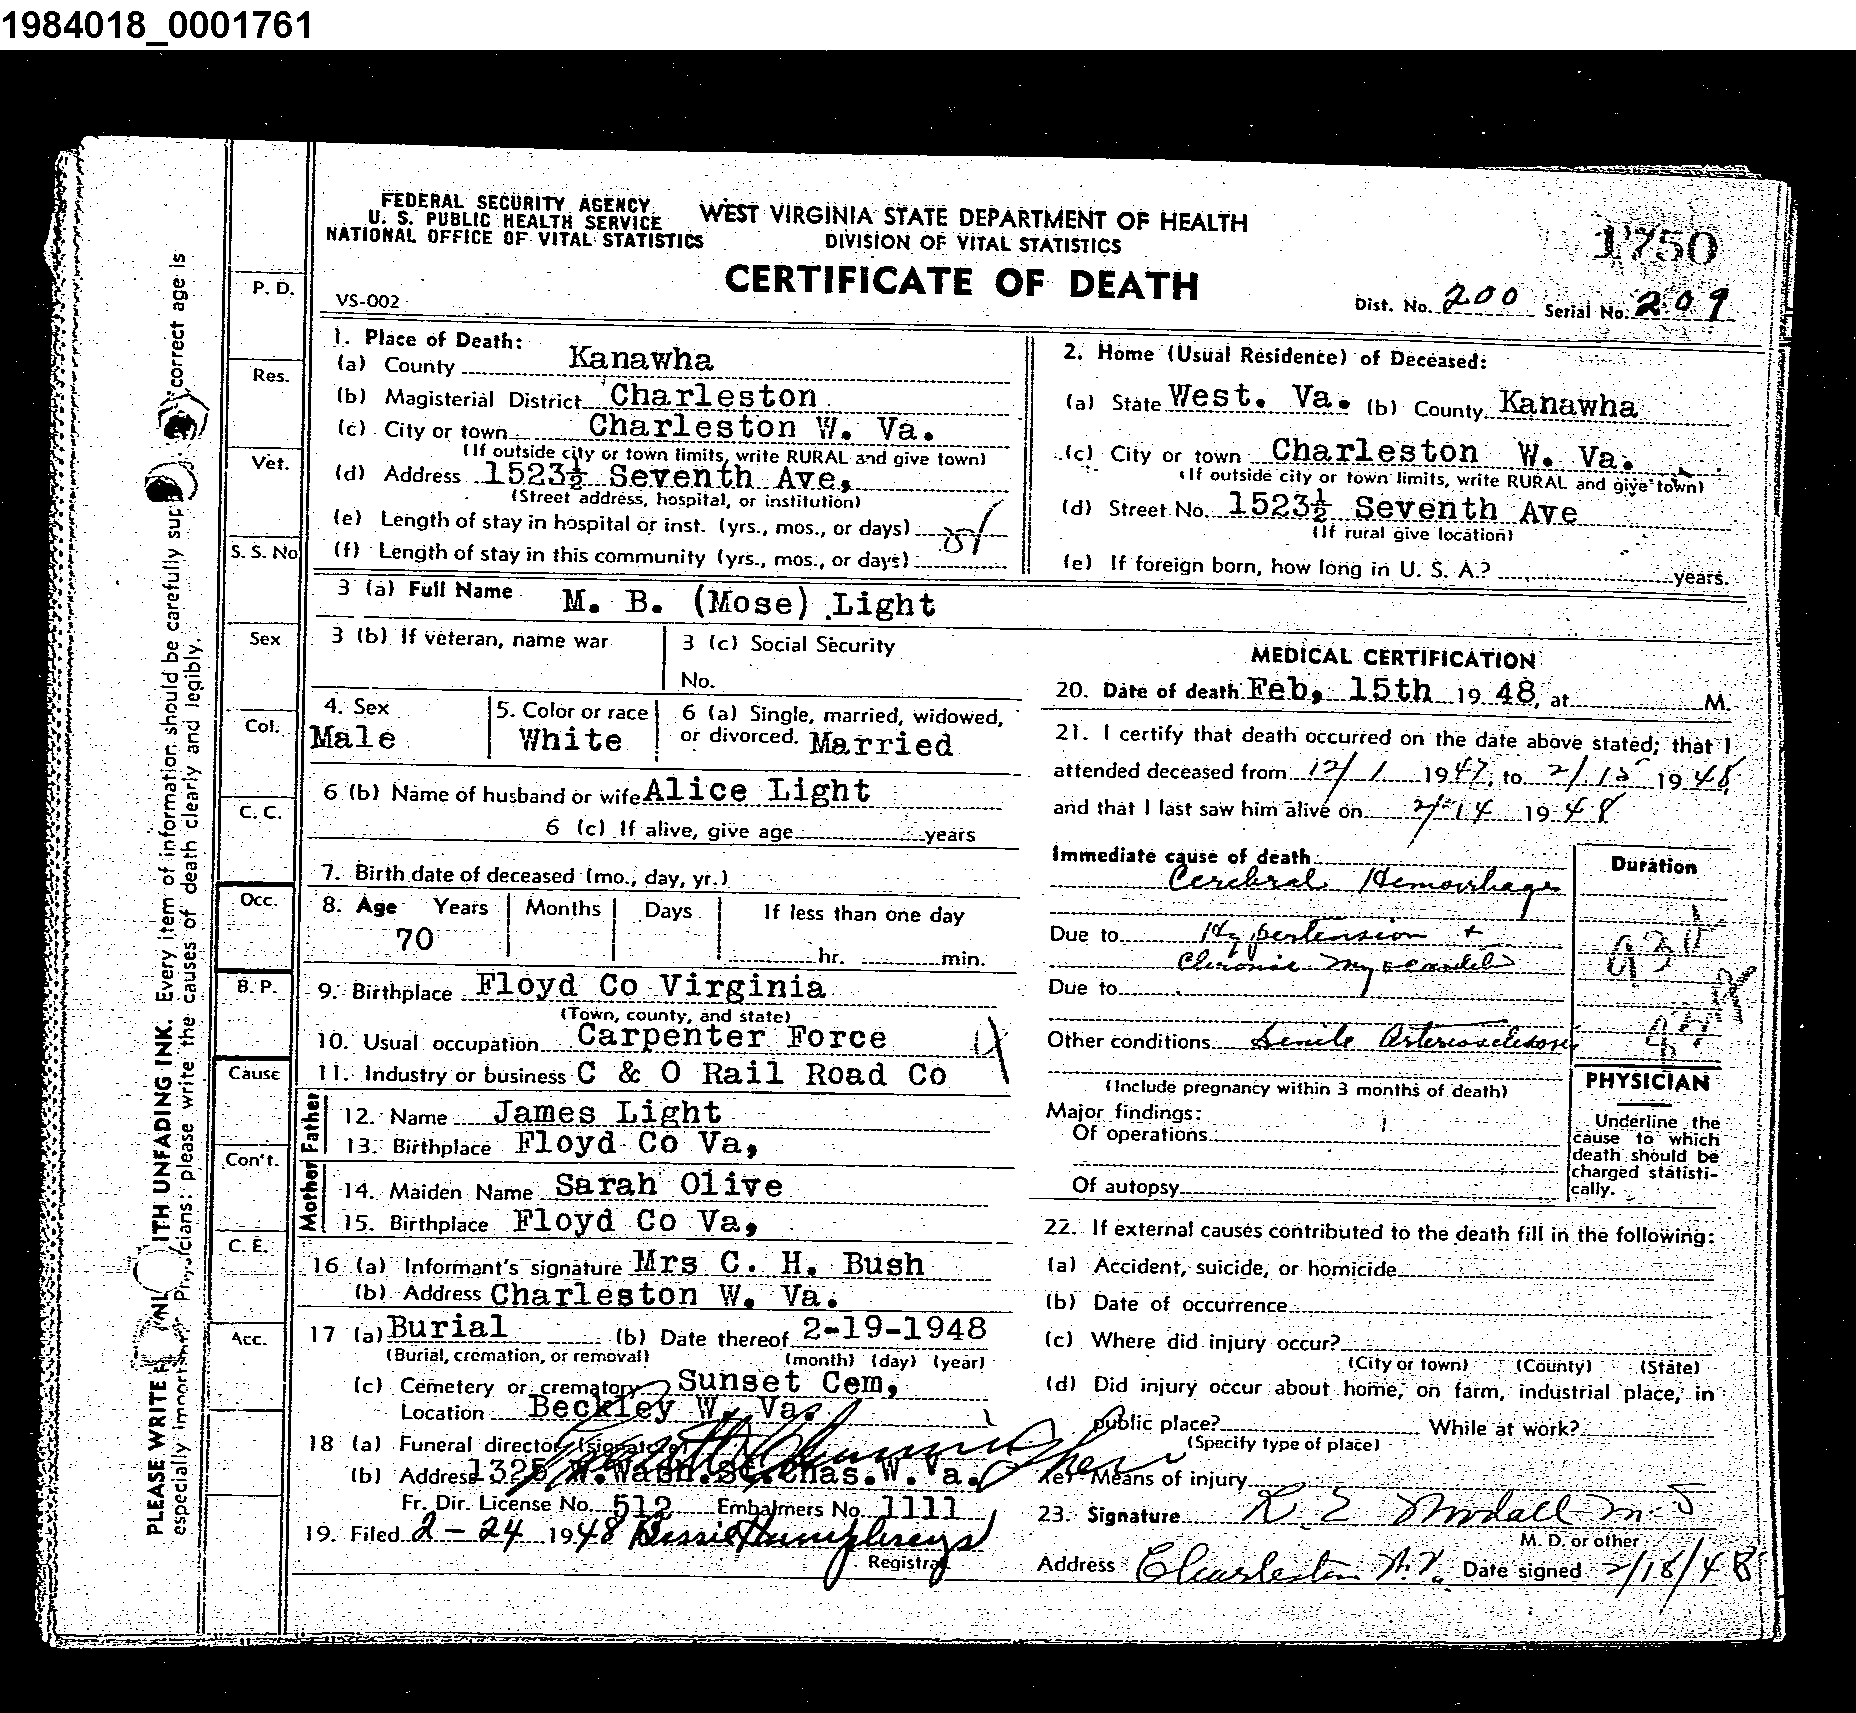 1984018_0001761
FEDERAL SECURITY AGENCY
U. S. PUBLIC HEALTH SERVICE
NATIONAL OFFICE OF VITAL STATISTICS
WEST VIRGINIA STATE DEPARTMENT OF HEALTH
DIVISION OF VITAL STATISTICS
CERTIFICATE OF DEATH
VS-002
1750
Dist. No. 200 Serial No. 209
P. D.
Res.
Vet.
S. S. No
Sex
Col.
C. C.
Occ.
B. P.
Cause
Con't.
C. E.
Acc.
PLEASE WRITE ITH UNFADING INK. Every item of information should be carefully sup correct age is
especially important. Physicians: please write the causes of death clearly and legibly.
1. Place of Death:
(a) County Kanawha
(b) Magisterial District Charleston
(c) City or town Charleston W. Va.
(If outside city or town limits, write RURAL and give town)
(d) Address 1523½ Seventh Ave,
(Street address, hospital, or institution)
(e) Length of stay in hospital or inst. (yrs., mos., or days)
(f) Length of stay in this community (yrs., mos., or days)
2. Home (Usual Residence) of Deceased:
(a) State West. Va. (b) County Kanawha
(c) City or town Charleston W. Va.
(If outside city or town limits, write RURAL and give town)
(d) Street No. 1523½ Seventh Ave
(If rural give location)
(e) If foreign born, how long in U. S. A.? years.
3 (a) Full Name M. B. (Mose) Light
3 (b) If veteran, name war
3 (c) Social Security
No.
4. Sex
Male
5. Color or race
White
6 (a) Single, married, widowed,
or divorced. Married
6 (b) Name of husband or wife Alice Light
6 (c) If alive, give age years
7. Birth date of deceased (mo., day, yr.)
8. Age Years Months Days If less than one day
70 hr. min.
9. Birthplace Floyd Co Virginia
(Town, county, and state)
10. Usual occupation Carpenter Force
11. Industry or business C & O Rail Road Co
Father
12. Name James Light
13. Birthplace Floyd Co Va,
Mother
14. Maiden Name Sarah Olive
15. Birthplace Floyd Co Va,
16 (a) Informant's signature Mrs C. H. Bush
(b) Address Charleston W. Va.
17 (a) Burial (b) Date thereof 2-19-1948
(Burial, cremation, or removal) (month) (day) (year)
(c) Cemetery or crematory Sunset Cem,
Location Beckley W. Va.
18 (a) Funeral director (signature)
(b) Address 1325 W.Wash.St.Chas.W.Va.
Fr. Dir. License No. 512 Embalmers No. 1111
19. Filed 2-24 1948 Bessie Humphreys
Registrar
MEDICAL CERTIFICATION
20. Date of death Feb, 15th 19 48, at M.
21. I certify that death occurred on the date above stated; that I
attended deceased from 12/1 1947, to 2/15 1948
and that I last saw him alive on 2/14 1948
Immediate cause of death
Cerebral Hemorrhage
Due to Hypertension +
Chronic Myocarditis
Due to
Other conditions Senile Arteriosclerosis
(Include pregnancy within 3 months of death)
Major findings:
Of operations
Of autopsy
Duration
PHYSICIAN
Underline the
cause to which
death should be
charged statisti-
cally.
22. If external causes contributed to the death fill in the following:
(a) Accident, suicide, or homicide
(b) Date of occurrence
(c) Where did injury occur?
(City or town) (County) (State)
(d) Did injury occur about home, on farm, industrial place, in
public place? While at work?
(Specify type of place)
(e) Means of injury
23. Signature R. E. Woodall M. D
M. D. or other
Address Charleston W. V. Date signed 2/18/48